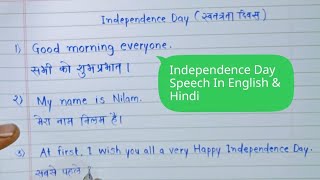 Independence Day (स्वतन्त्रता दिवस)
1) Good morning everyone.
सभी को शुभप्रभात।
Independence Day
Speech In English &
Hindi
2) My name is Nilam.
मेरा नाम निलम है।
3) At first, I wish you all a very Happy Independence Day.
सबसे पहले